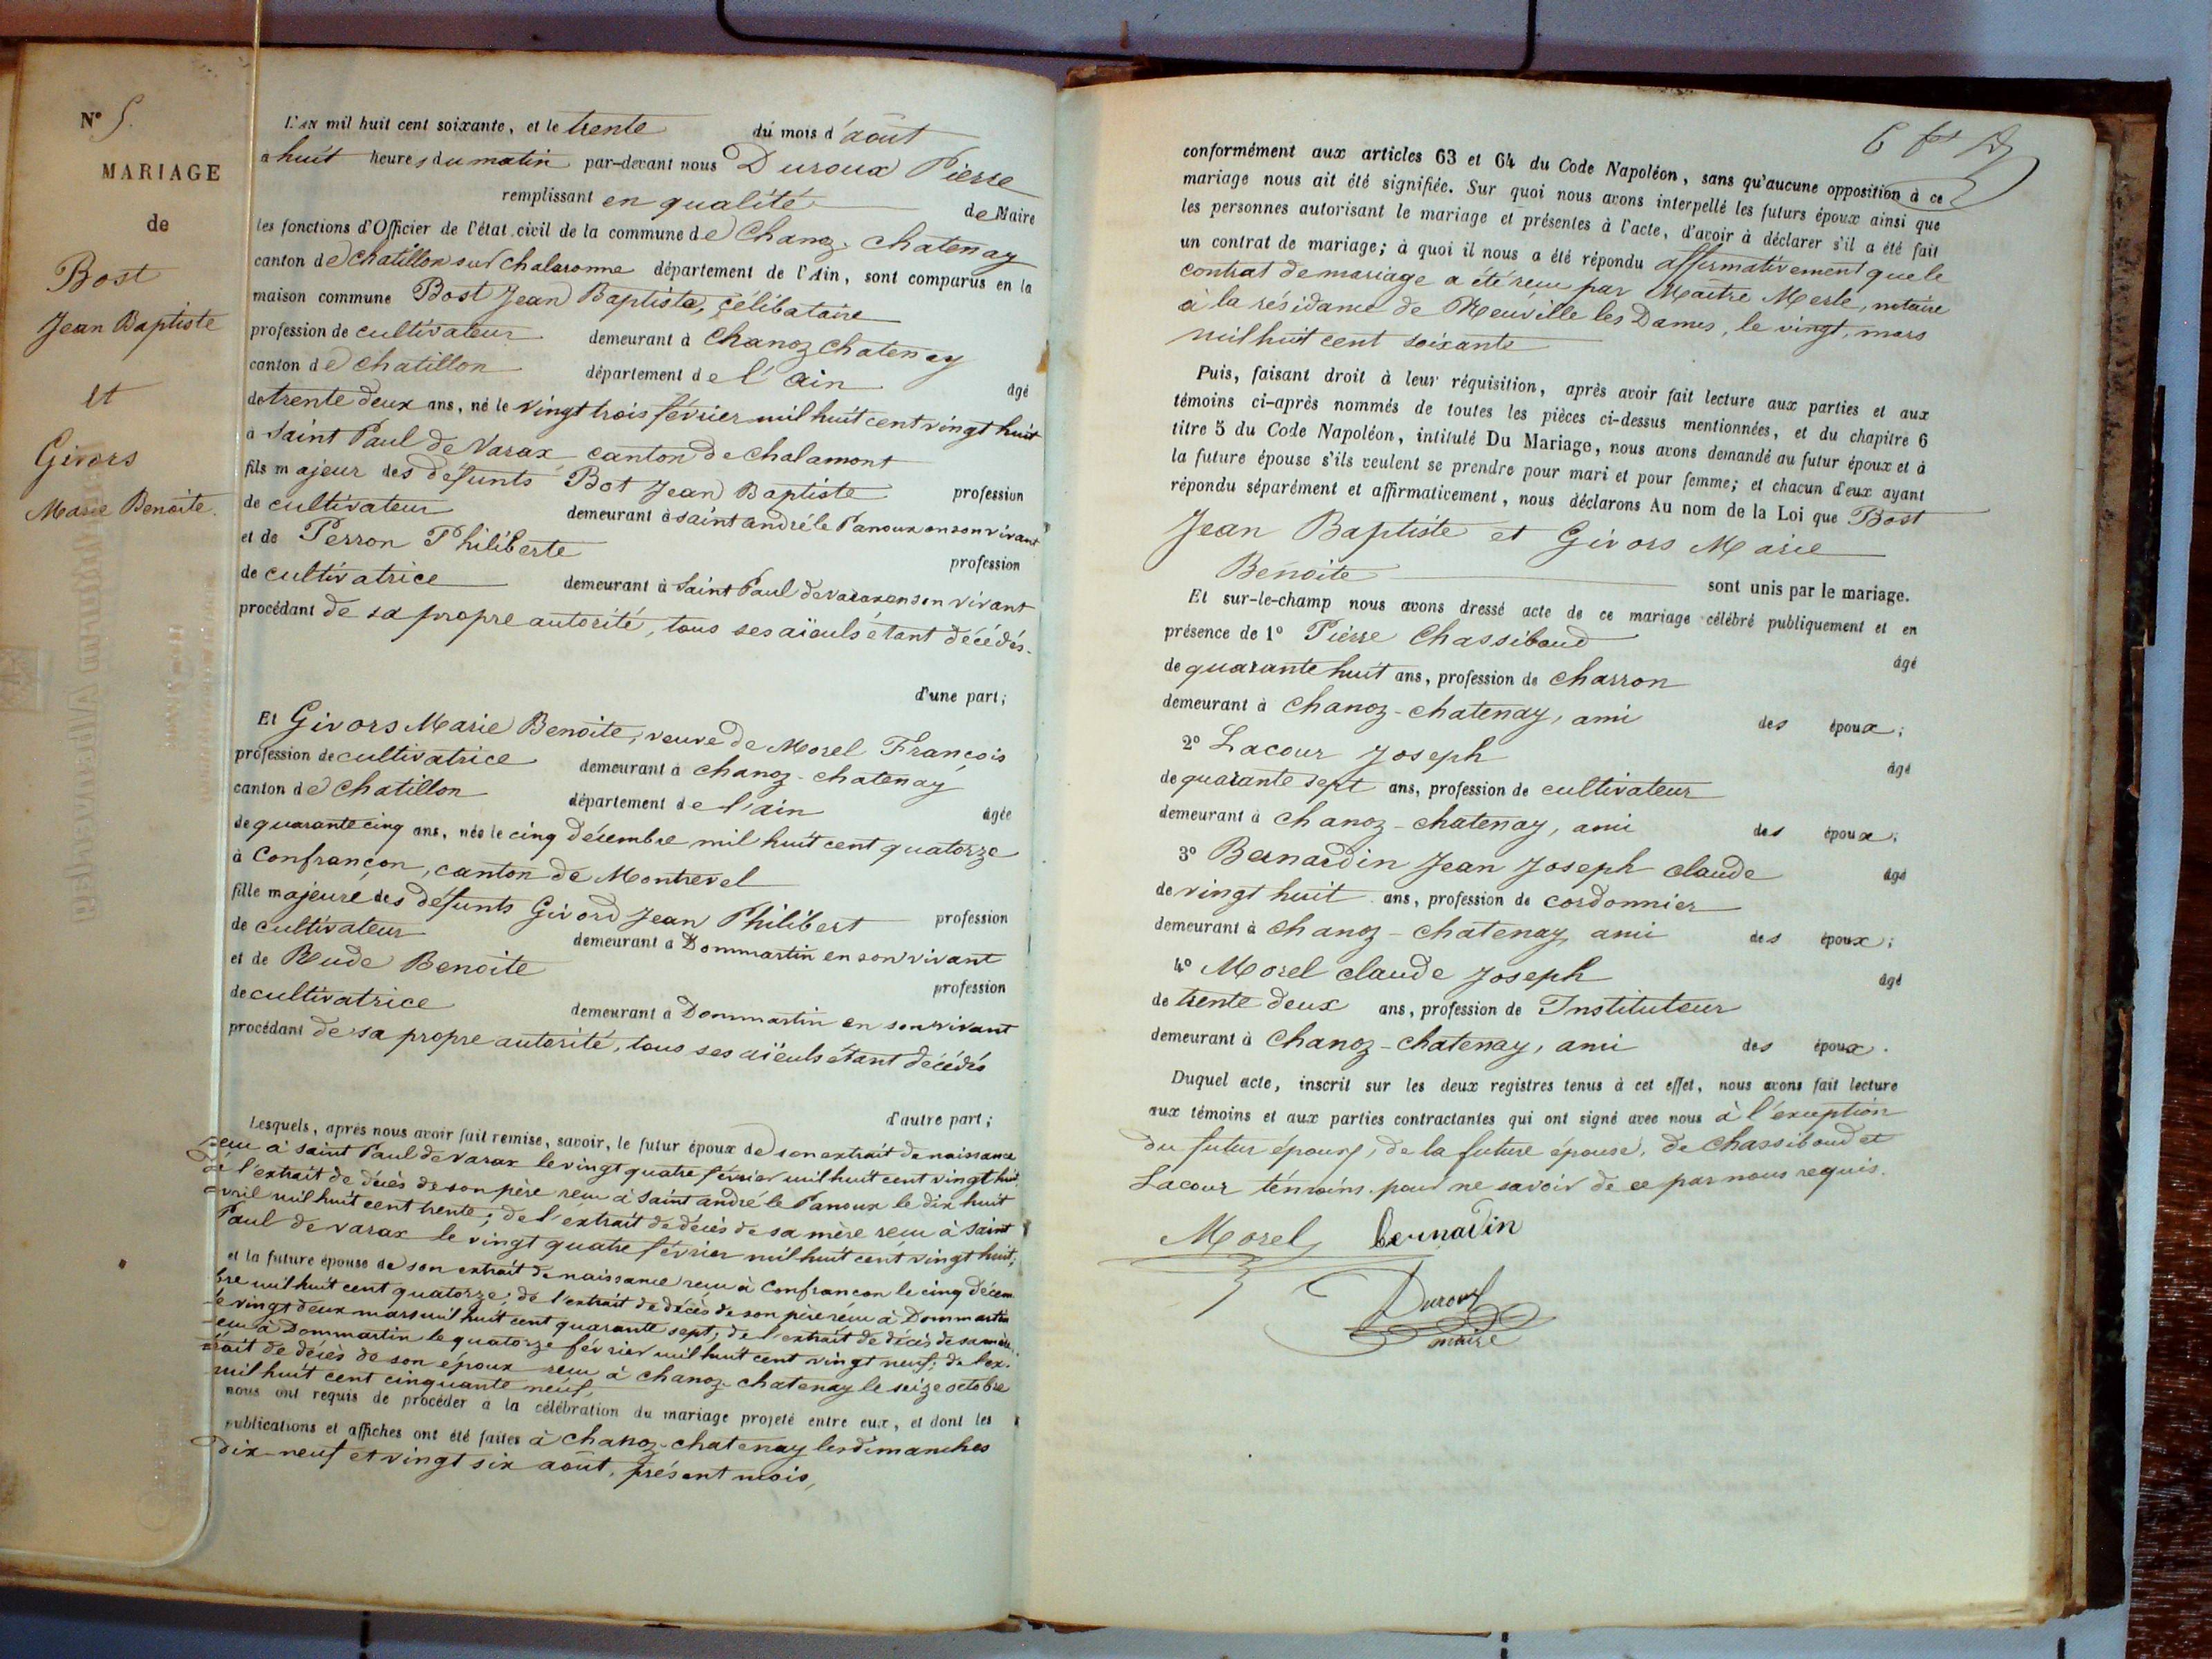 N° 5.
MARIAGE
de
Bost
Jean Baptiste
et
Givors
Marie Benoite.
L'AN mil huit cent soixante, et le trente du mois d'août
à huit heures du matin par-devant nous Duroux Pierre
remplissant en qualité de Maire
les fonctions d'Officier de l'état civil de la commune de Chanoz-chatenay
canton de Chatillon sur Chalaronne département de l'Ain, sont comparus en la
maison commune Bost Jean Baptiste, célibataire
profession de cultivateur demeurant à Chanoz chatenay
canton de Chatillon département de l'ain âgé
de trente deux ans, né le vingt trois février mil huit cent vingt huit
à Saint Paul de Varax canton de chalamont
fils majeur des défunts Bot Jean Baptiste profession
de cultivateur demeurant à saint andré le Panoux en son vivant
et de Perron Philiberte profession
de cultivatrice demeurant à Saint Paul de varax en son vivant
procédant de sa propre autorité, tous ses aïeuls étant décédés.
d'une part;
Et Givors Marie Benoite, veuve de Morel François
profession de cultivatrice demeurant à chanoz-chatenay
canton de Chatillon département de l'ain âgée
de quarante cinq ans, née le cinq décembre mil huit cent quatorze
à Confrançon, canton de Montrevel
fille majeure des défunts Givord Jean Philibert profession
de cultivateur demeurant à Dommartin en son vivant
et de Bude Benoite profession
de cultivatrice demeurant à Dommartin en son vivant
procédant de sa propre autorité, tous ses aïeuls étant décédés
d'autre part;
Lesquels, après nous avoir fait remise, savoir, le futur époux de son extrait de naissance
reçu à saint Paul de Varax le vingt quatre février mil huit cent vingt huit,
de l'extrait de décès de son père reçu à Saint andré le Panoux le dix huit
avril mil huit cent trente; de l'extrait de décès de sa mère reçu à Saint
Paul de varax le vingt quatre février mil huit cent vingt huit;
et la future épouse de son extrait de naissance reçu à Confrancon le cinq décem
bre mil huit cent quatorze; de l'extrait de décès de son père reçu à Dommartin
le vingt deux mars mil huit cent quarante sept; de l'extrait de décès de sa mère
reçu à Dommartin le quatorze février mil huit cent vingt neuf; de l'ex-
trait de décès de son époux reçu à chanoz-chatenay le seize octobre
mil huit cent cinquante neuf,
nous ont requis de procéder à la célébration du mariage projeté entre eux, et dont les
publications et affiches ont été faites à Chanoz-chatenay les dimanches
dix-neuf et vingt six août, présent mois,
conformément aux articles 63 et 64 du Code Napoléon, sans qu'aucune opposition à ce
mariage nous ait été signifiée. Sur quoi nous avons interpellé les futurs époux ainsi que
les personnes autorisant le mariage et présentes à l'acte, d'avoir à déclarer s'il a été fait
un contrat de mariage; à quoi il nous a été répondu affirmativement que le
contrat de mariage a été reçu par Maître Merle, notaire
à la résidance de Neuville les Dames, le vingt, mars
mil huit cent soixante
Puis, faisant droit à leur réquisition, après avoir fait lecture aux parties et aux
témoins ci-après nommés de toutes les pièces ci-dessus mentionnées, et du chapitre 6
titre 5 du Code Napoléon, intitulé Du Mariage, nous avons demandé au futur époux et à
la future épouse s'ils veulent se prendre pour mari et pour femme; et chacun d'eux ayant
répondu séparément et affirmativement, nous déclarons Au nom de la Loi que Bost
Jean Baptiste et Givors Marie
Benoite sont unis par le mariage.
Et sur-le-champ nous avons dressé acte de ce mariage célébré publiquement et en
présence de 1° Pierre Chassiboud âgé
de quarante huit ans, profession de charron
demeurant à Chanoz-chatenay, ami des époux;
2° Lacour Joseph âgé
de quarante sept ans, profession de cultivateur
demeurant à Chanoz-chatenay, ami des époux;
3° Bernardin Jean Joseph claude âgé
de vingt huit ans, profession de cordonnier
demeurant à Chanoz-chatenay ami des époux;
4° Morel claude Joseph âgé
de trente deux ans, profession de Instituteur
demeurant à Chanoz-chatenay, ami des époux.
Duquel acte, inscrit sur les deux registres tenus à cet effet, nous avons fait lecture
aux témoins et aux parties contractantes qui ont signé avec nous à l'exception
du futur époux, de la future épouse, de Chassiboud et
Lacour témoins pour ne savoir de ce par nous requis.
Morel bernardin
Duroux
maire